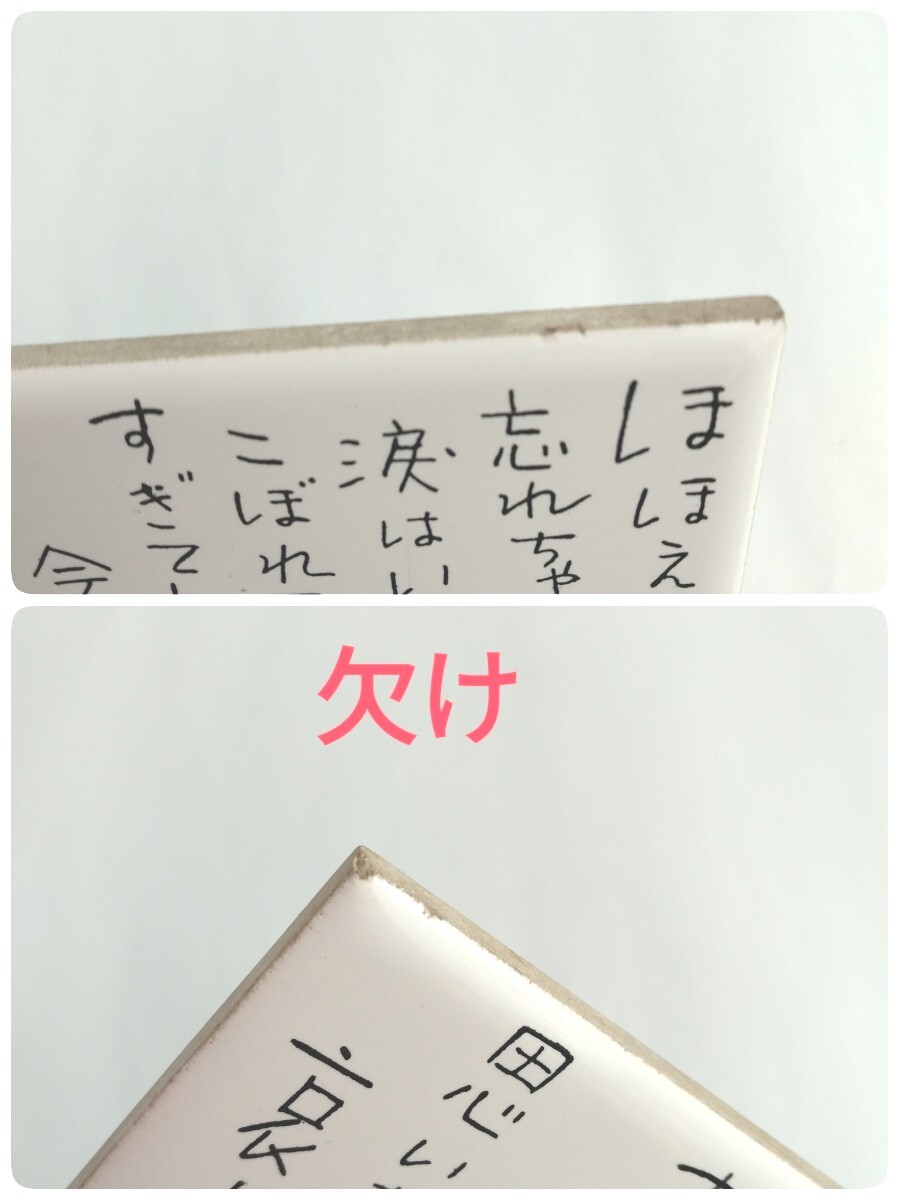 ほほえ
忘れちゃ
涙はい
こぼれ
すぎて
今
欠け
思い
哀